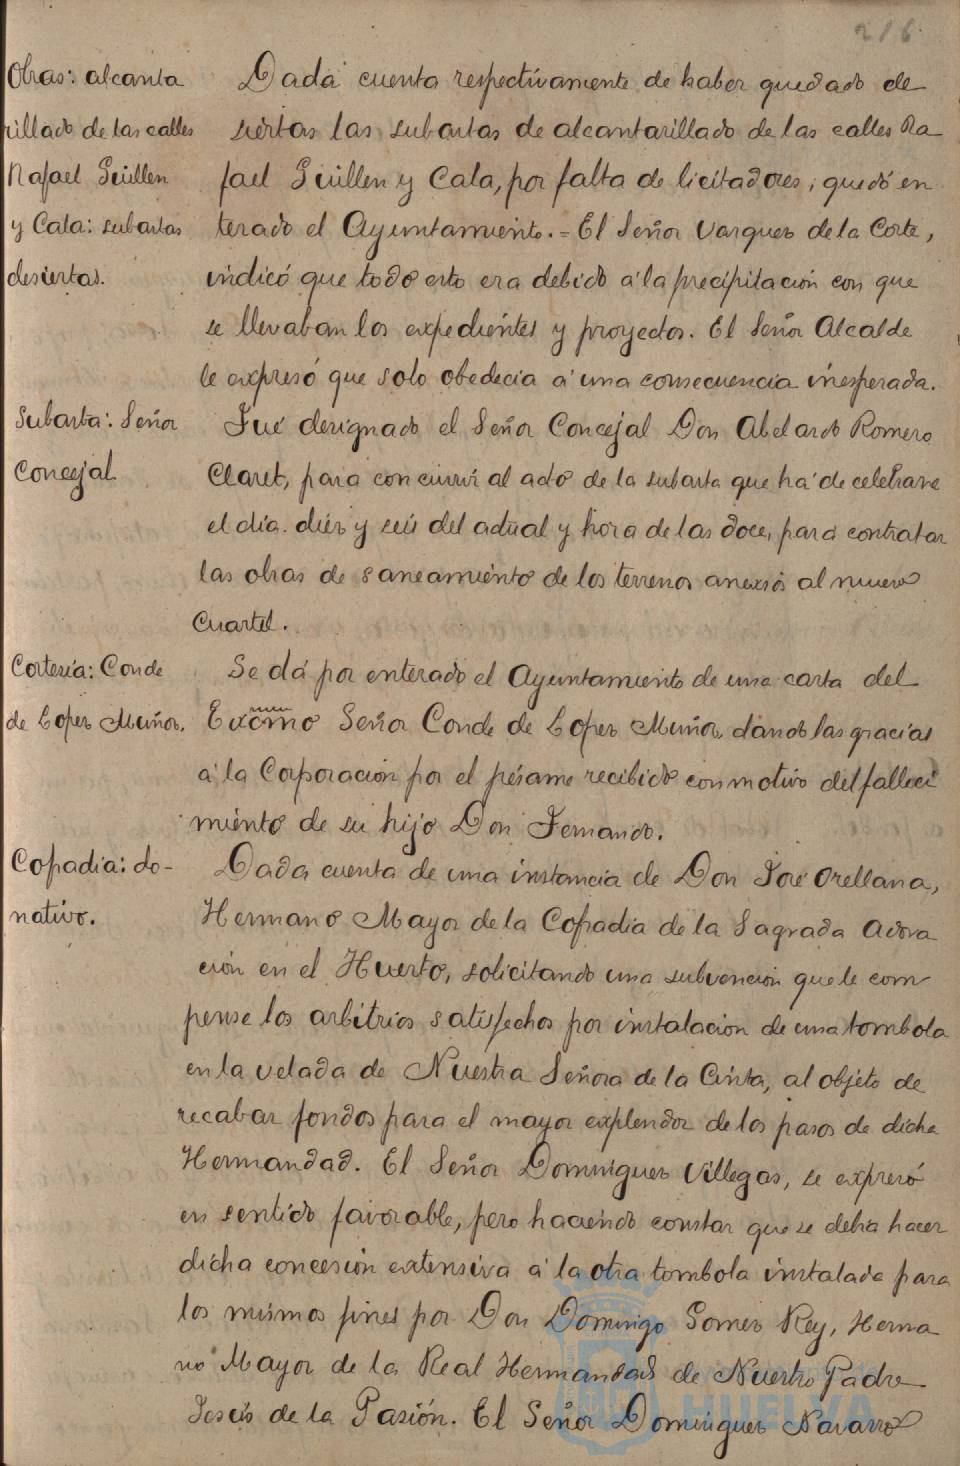 216
Obras: alcanta
rillado de las calles
Rafael Guillen
y Cala: subastas
desiertas.
Dada cuenta respectivamente de haber quedado de
siertas las subastas de alcantarillado de las calles Ra
fael Guillen y Cala, por falta de licitadores, quedó en
terado el Ayuntamiento.=El Señor Vazquez de la Corte,
indicó que todo esto era debido a la precipitación con que
se llevaban los expedientes y proyectos. El Señor Alcalde
le expresó que solo obedecia a una consecuencia inesperada.
Subasta: Señor
Concejal
Fué designado el Señor Concejal Don Abelardo Romero
Claret, para concurrir al acto de la subasta que ha de celebrarse
el día diez y seis del actual y hora de las doce, para contratar
las obras de saneamiento de los terrenos anexos al nuevo
Cuartel.
Cortesía: Conde
de Lopez Muñoz.
Se dá por enterado el Ayuntamiento de una carta del
Excmo Señor Conde de Lopez Muñoz, dando las gracias
a la Corporación por el pésame recibido con motivo del falleci
miento de su hijo Don Fernando.
Cofradia: do-
nativo.
Dada cuenta de una instancia de Don José Orellana,
Hermano Mayor de la Cofradia de la Sagrada Adora
ción en el Huerto, solicitando una subvención que le com
pense los arbitrios satisfechos por instalación de una tombola
en la velada de Nuestra Señora de la Cinta, al objeto de
recabar fondos para el mayor explendor de los pasos de dicha
Hermandad. El Señor Dominguez Villegas, se expresó
en sentido favorable, pero haciendo constar que se debia hacer
dicha concesión extensiva a la otra tombola instalada para
los mismos fines por Don Domingo Gomez Rey, Herma
no Mayor de la Real Hermandad de Nuestro Padre
Jesús de la Pasión. El Señor Dominguez Navarro
HUELVA